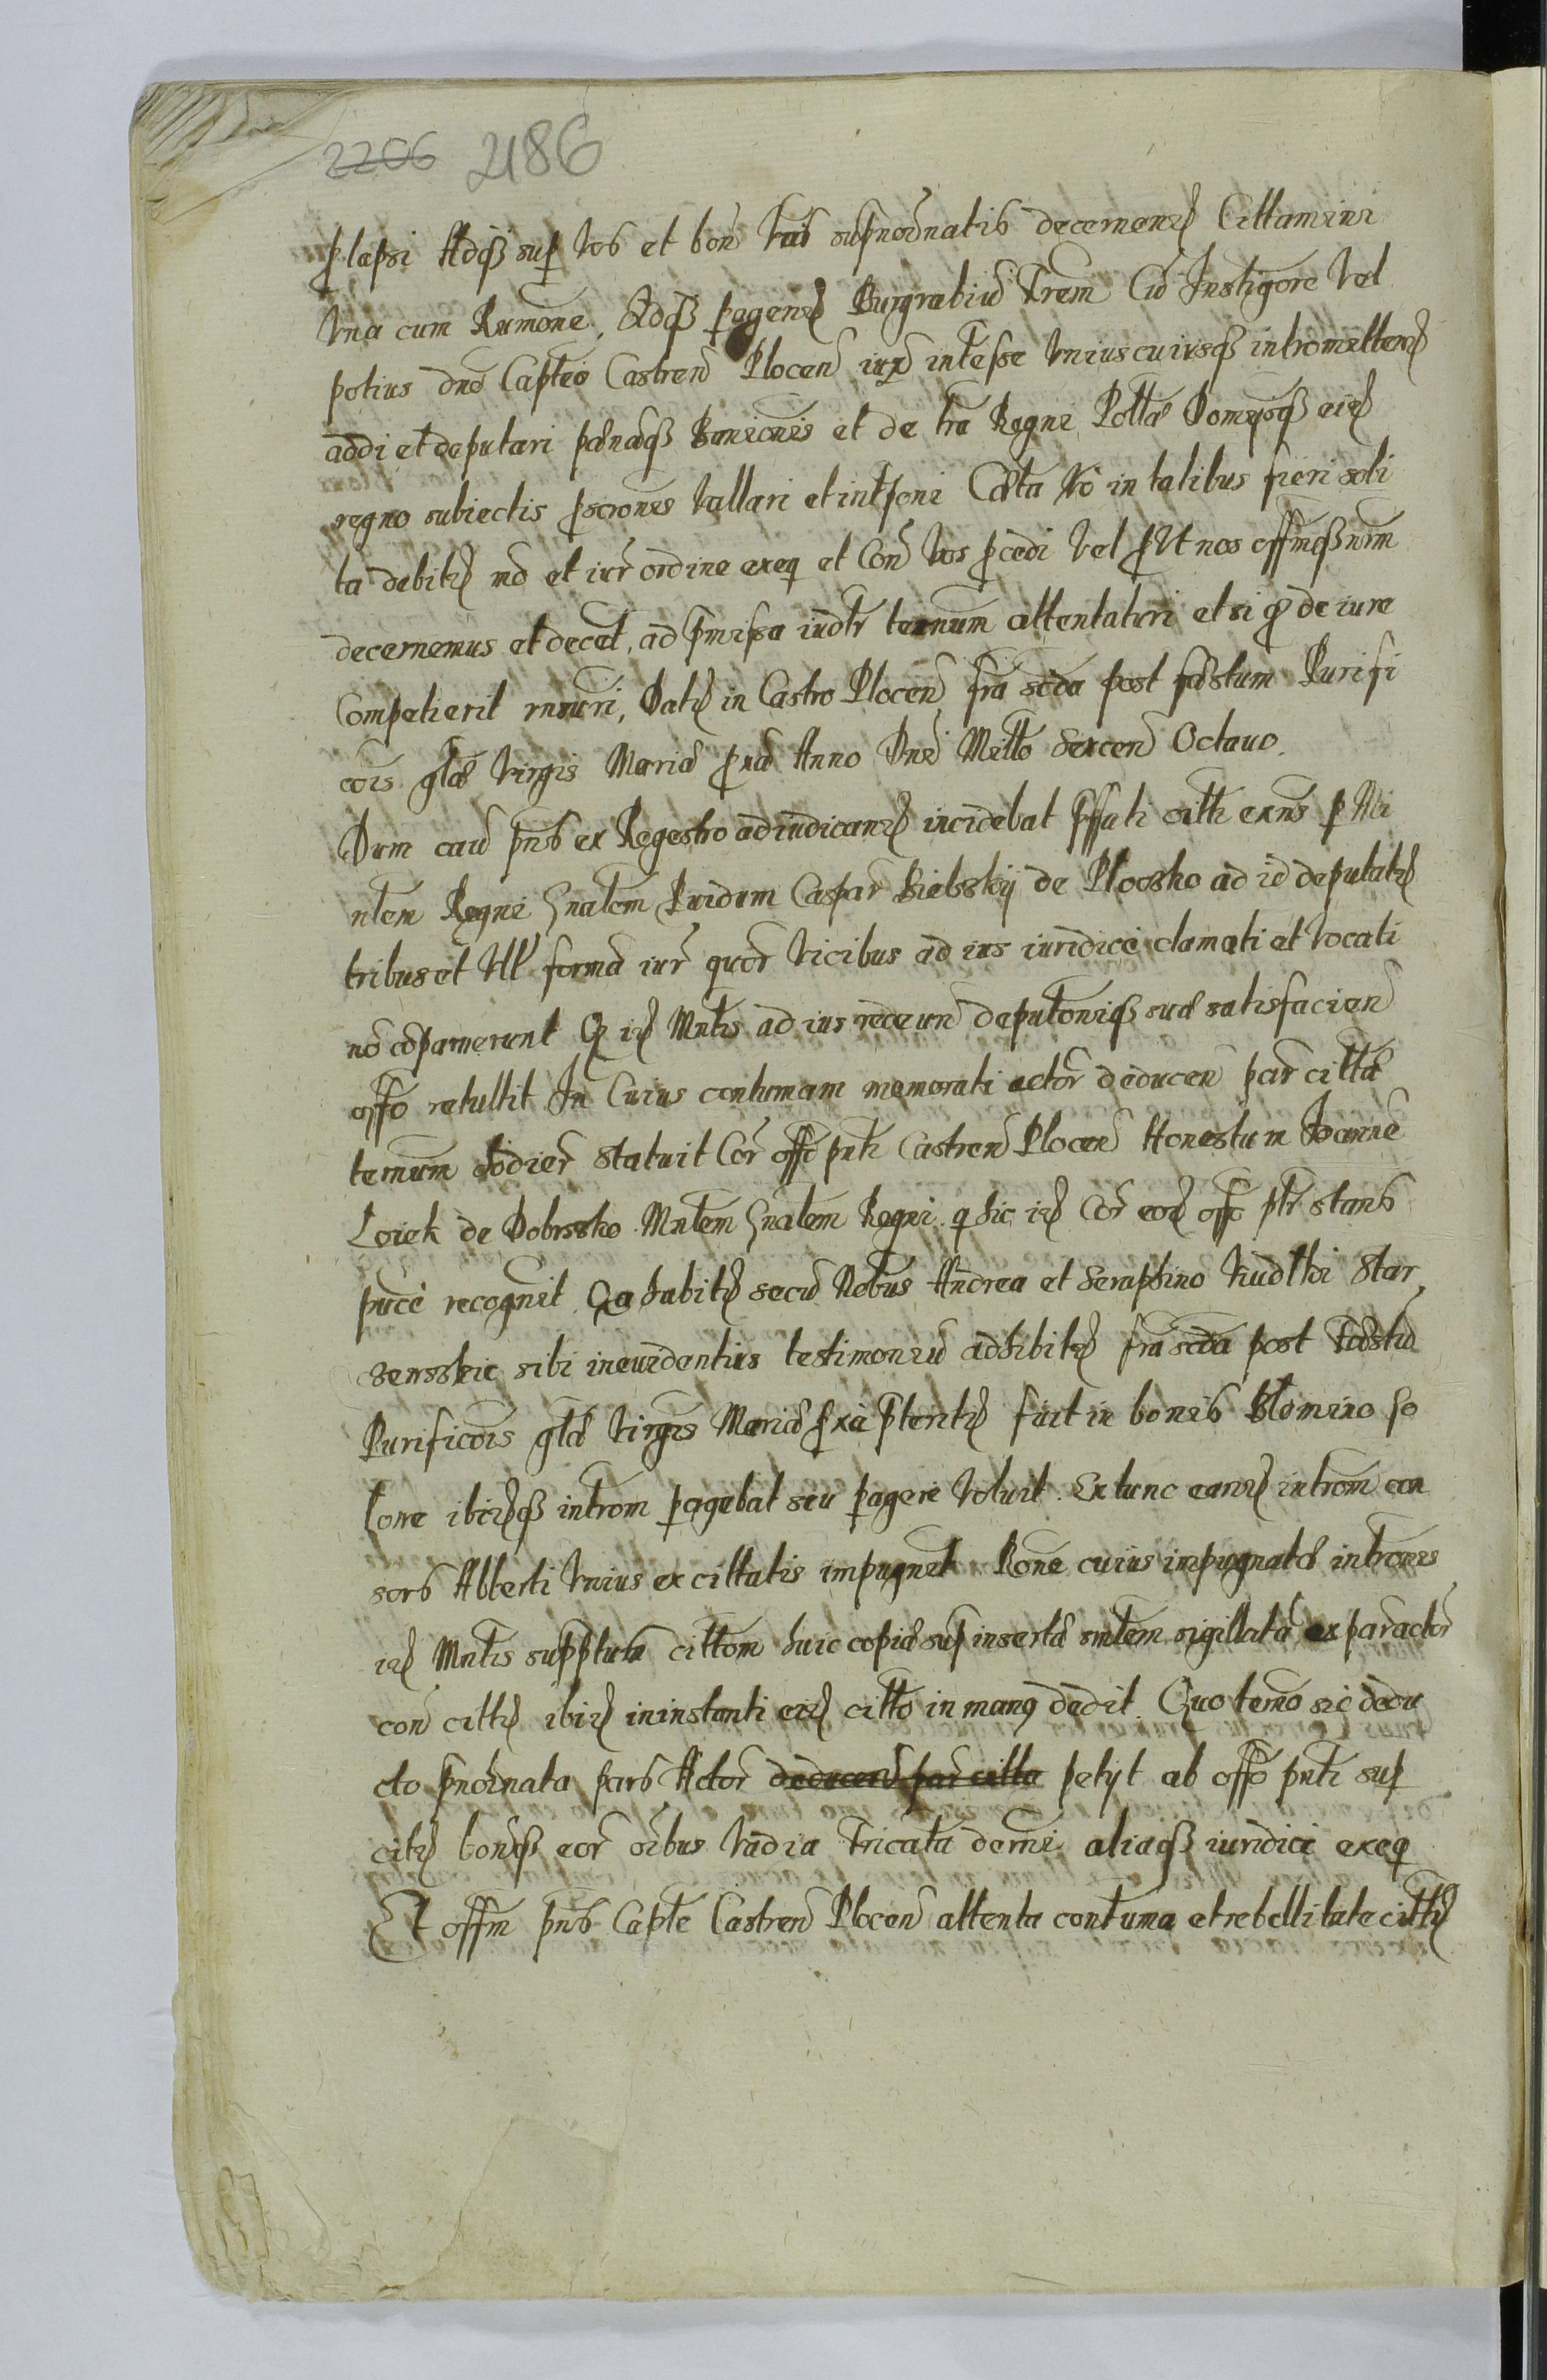 2206 2186
plapsi Adqß sup Vos et bon vris supnoīnatis decernen Cittamini
Vna cum Rumōne, Adqß pagend Burgrabiū Trem Cū Instigore Vel
potius dno Capteo Castren Plocen iurū intesse Vniuscuiusqß intromitten
addi et deputari pænaqß Banionis et de tra Regni Pottæ Domysqß eid
regno subiectis pscrones Vallari et intponi Cæta Vo in talibus fieri soli
ta debitis mō et iur ordine exeq et Con Vos pcedi Vel pVt nos offmqß nrm
decernemus et decet, ad pmissa iudtr termum attentaturi et si q de iure
Competierit rnsuri, Datt in Castro Plocen fra scda post festum Purifi
cōis gtæ Virgis Mariæ pxa Anno Dni Millo Sexcen Octauo.
Dum cau pns ex Regestro adiudicand incidebat pffati citti exns p Mi
ntem Regni Gnalem Puidum Caspar Bielskij de Plocsko ad id deputat
tribus et Vlt forma iur quor Vicibus ad ius iuridice clamati et Vocati
nō cōparuerunt Q id Mntis ad ius rece un deputonisqß suæ satisfacien
offo retullit In Cuius contumam memorati actor deducen par cittæ
termum hodier Statuit Cor offo pnti Castren Plocen Honestum Joannē
Loiek de Dobrssko Mntem Gnalem Regni q hic id Cor eod offo ptr stans
puce recognit Qa habit secū Nobus Andrea et Seraphino Viudthi Star
senskie sibi ineuidentius testimoniū adhibit fra scda post Fæstū
Purificōis gtæ Virgis Mariæ pxa ptent fuit in bonis Blomino so
lone ibidqß introm pagebat seu pagere Voluit. Ex tunc eand introm con
sors Alberti Vnius ex cittatis impugnit Rone cuius impugnatæ intrones
id Mntis supptum cittom huic copiæ sup insertæ smlem sigillatā ex par actor
con citt ibid in instanti eid citto in manq dedit. Quo termo sic dedu
cto pnoīnata pars Actor deducen par citta petijt ab offo pnti sup
cit bonqß eor oībus Vadia Tricata derni aliaqß iuridice exeq
Et offm pns Capte Castren Plocen attenta contuma et rebellitate citt